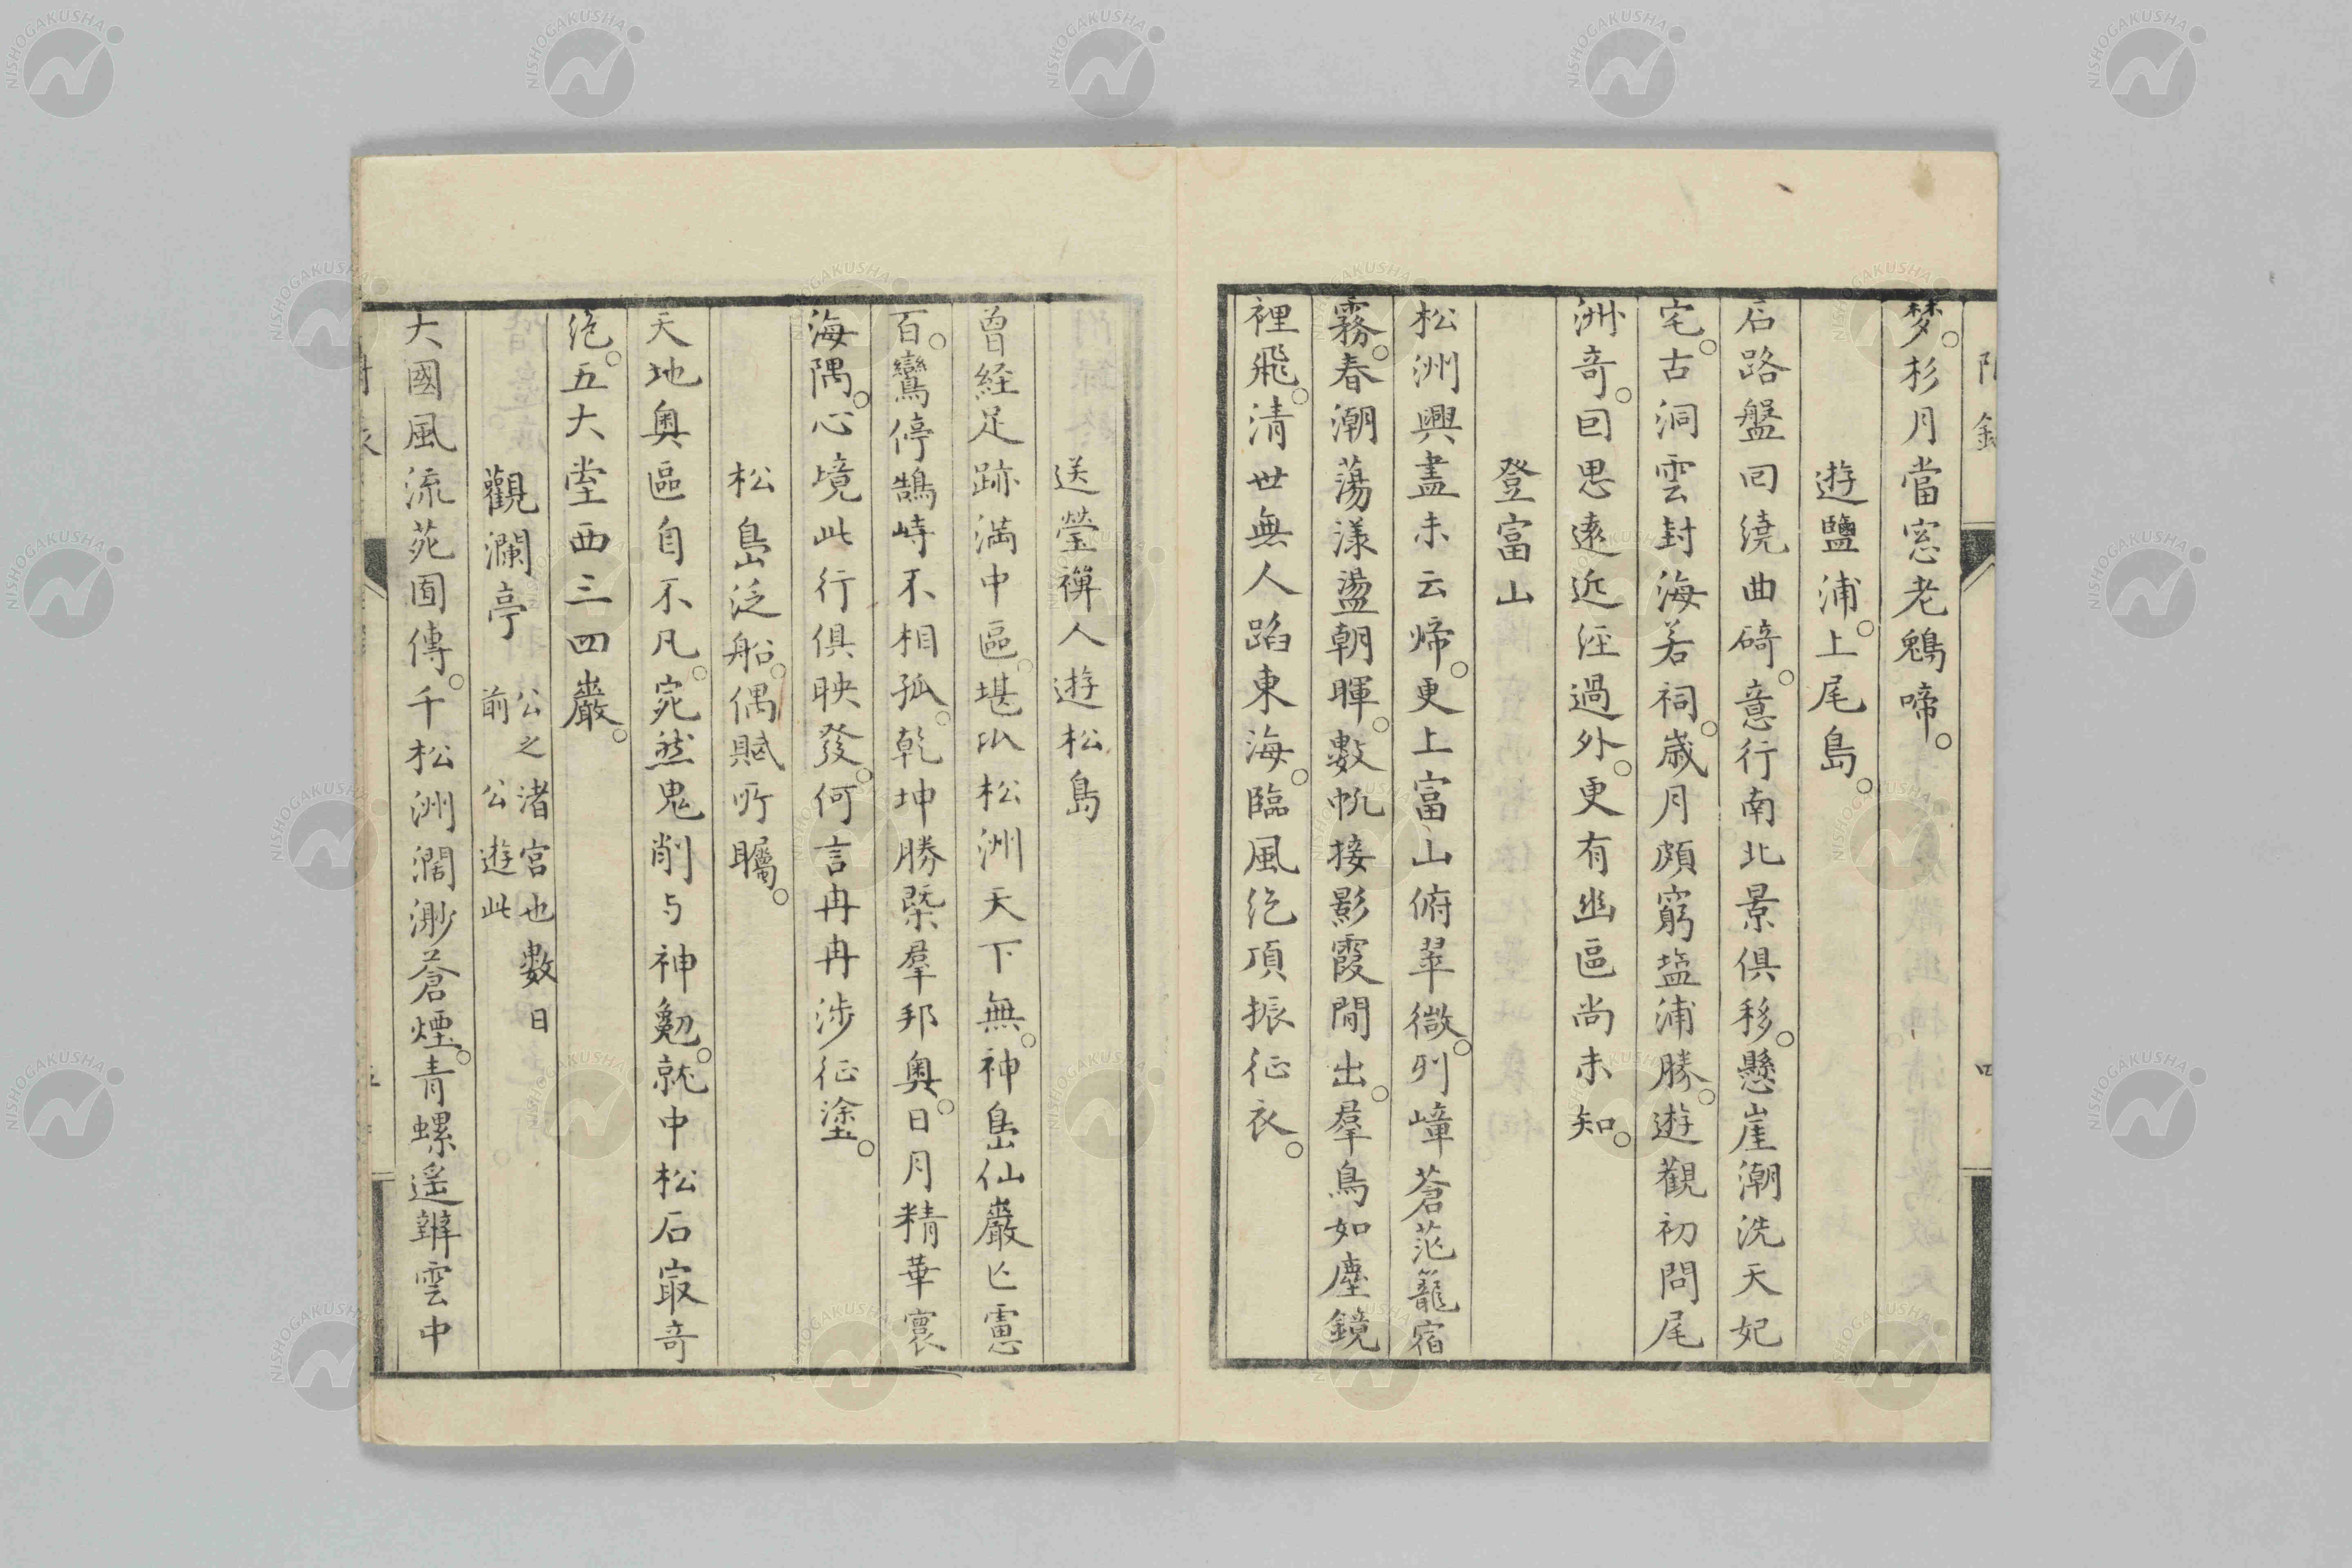 梦。杉月當窓老鵷啼。
遊鹽浦。上尾島。
石路盤回繞曲碕。意行南北景俱移。懸崖潮洗天妃
宅。古洞雲封海若祠。歳月頗窮塩浦勝。遊觀初問尾
洲奇。回思遠近淫過外。更有幽區尚未知。
登富山
松洲興盡未云歸。更上富山俯翠微。列嶂蒼茫籠宿
霧。春潮蕩漾盪朝暉。數帆接影霞間出。羣鳥如塵鏡
裡飛。清世無人蹈東海。臨風絶頂振征衣。
送瑩禅人遊松島
曽経足跡満中區。堪以松洲天下無。神島仙巖七
百。鸞停鵠峙不相孤。乾坤勝槩羣邦奥。日月精華寰
海隅。心境此行俱映發。何言冉冉涉征塗。
松島泛船。偶賦所矚。
天地奥區自不凡。宛然鬼削与神劖。就中松石冣奇
絶。五大堂西三四巖。
觀瀾亭 公之渚宮也數日
前公遊此
大國風流苑囿傳。千松洲濶渺蒼煙。青螺遥辨雲中
附錄
四
NISHOGAKUSHA